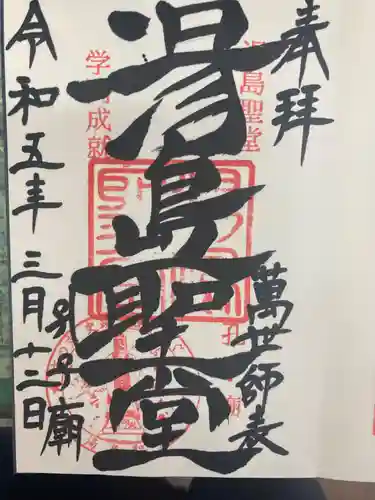 奉拝
湯島聖堂
学 成就
湯島聖堂
萬世師表
令和五年三月十二日
廟